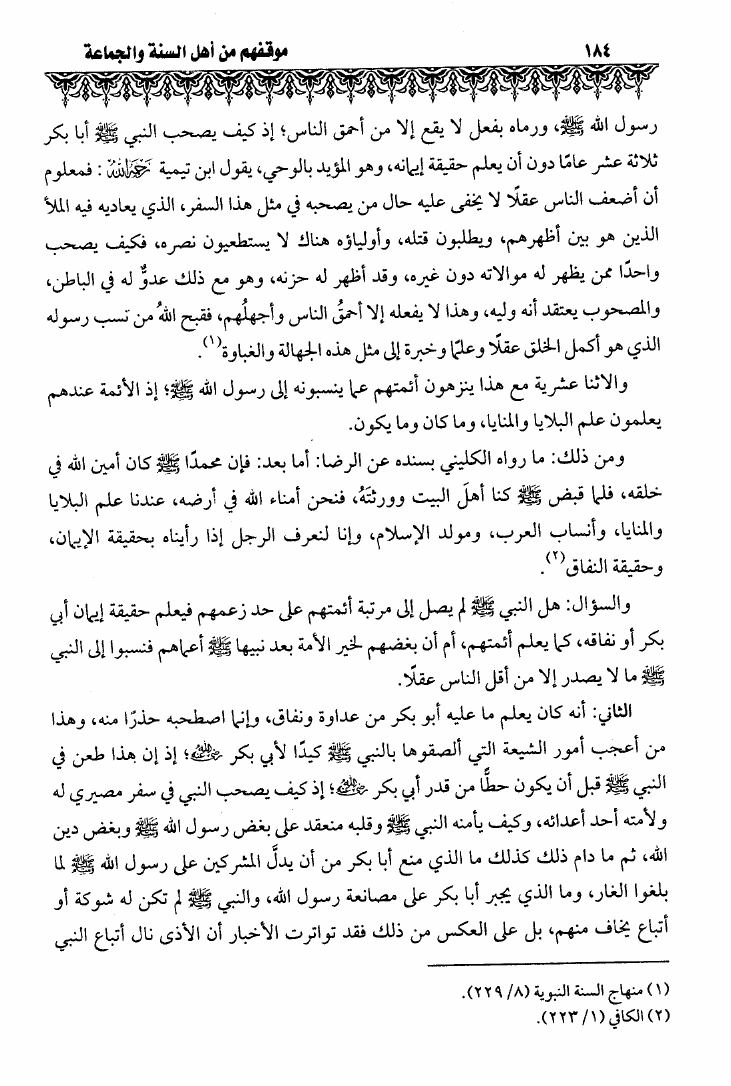 ١٨٤
موقفهم من أهل السنة والجماعة
رسول الله ﷺ، ورماه بفعل لا يقع إلا من أحمق الناس؛ إذ كيف يصحب النبي ﷺ أبا بكر
ثلاثة عشر عامًا دون أن يعلم حقيقة إيمانه، وهو المؤيد بالوحي، يقول ابن تيمية رحمه الله : فمعلوم
أن أضعف الناس عقلًا لا يخفى عليه حال من يصحبه في مثل هذا السفر، الذي يعاديه فيه الملأ
الذين هو بين أظهرهم، ويطلبون قتله، وأولياؤه هناك لا يستطعيون نصره، فكيف يصحب
واحدًا ممن يظهر له موالاته دون غيره، وقد أظهر له حزنه، وهو مع ذلك عدوٌّ له في الباطن،
والمصحوب يعتقد أنه وليه، وهذا لا يفعله إلا أحمقُ الناس وأجهلُهم، فقبح اللهُ من نسب رسوله
الذي هو أكمل الخلق عقلًا وعلمًا وخبرة إلى مثل هذه الجهالة والغباوة(١).
والاثنا عشرية مع هذا ينزهون أئمتهم عما ينسبونه إلى رسول الله ﷺ؛ إذ الأئمة عندهم
يعلمون علم البلايا والمنايا، وما كان وما يكون.
ومن ذلك: ما رواه الكليني بسنده عن الرضا: أما بعد: فإن محمدًا ﷺ كان أمين الله في
خلقه، فلما قبض ﷺ كنا أهلَ البيت وورثتَهُ، فنحن أمناء الله في أرضه، عندنا علم البلايا
والمنايا، وأنساب العرب، ومولد الإسلام، وإنا لنعرف الرجل إذا رأيناه بحقيقة الإيمان،
وحقيقة النفاق(٢).
والسؤال: هل النبي ﷺ لم يصل إلى مرتبة أئمتهم على حد زعمهم فيعلم حقيقة إيمان أبي
بكر أو نفاقه، كما يعلم أئمتهم، أم أن بغضهم لخير الأمة بعد نبيها ﷺ أعماهم فنسبوا إلى النبي
ﷺ ما لا يصدر إلا من أقل الناس عقلًا.
الثاني: أنه كان يعلم ما عليه أبو بكر من عداوة ونفاق، وإنما اصطحبه حذرًا منه، وهذا
من أعجب أمور الشيعة التي ألصقوها بالنبي ﷺ كيدًا لأبي بكر رضي الله عنه؛ إذ إن هذا طعن في
النبي ﷺ قبل أن يكون حطًّا من قدر أبي بكر رضي الله عنه؛ إذ كيف يصحب النبي في سفر مصيري له
ولأمته أحد أعدائه، وكيف يأمنه النبي ﷺ وقلبه منعقد على بغض رسول الله ﷺ وبغض دين
الله، ثم ما دام ذلك كذلك ما الذي منع أبا بكر من أن يدلَّ المشركين على رسول الله ﷺ لما
بلغوا الغار، وما الذي يجبر أبا بكر على مصانعة رسول الله، والنبي ﷺ لم تكن له شوكة أو
أتباع يخاف منهم، بل على العكس من ذلك فقد تواترت الأخبار أن الأذى نال أتباع النبي
(١) منهاج السنة النبوية (٨/ ٢٢٩).
(٢) الكافي (١/ ٢٢٣).